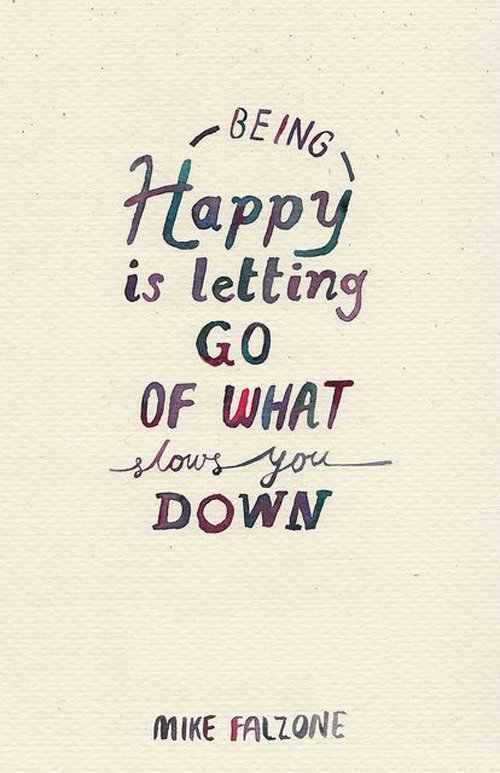 BEING
Happy
is letting
GO
OF WHAT
slows you
DOWN
MIKE FALZONE